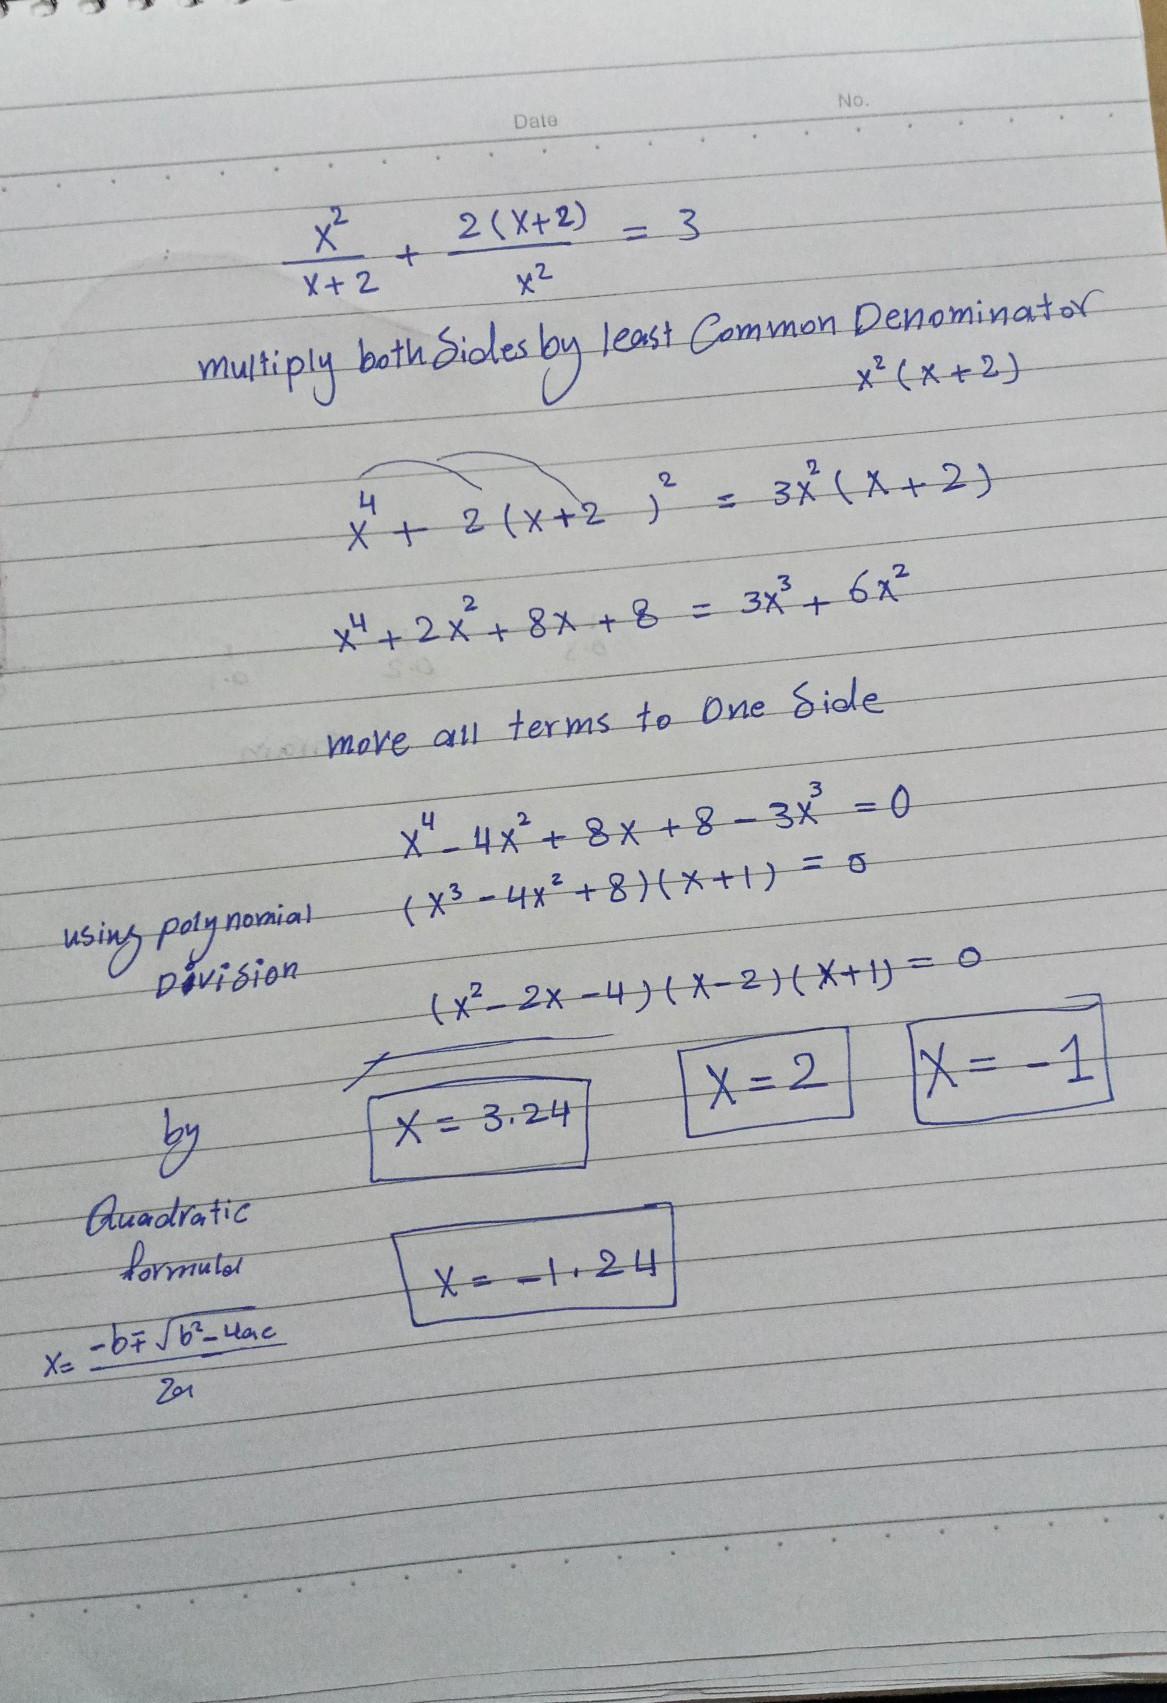 Date No.
x²/(x+2) + 2(x+2)/x² = 3
multiply both Sides by least Common Denominator
x²(x+2)
x⁴ + 2(x+2)² = 3x²(x+2)
x⁴ + 2x² + 8x + 8 = 3x³ + 6x²
move all terms to One Side
x⁴ - 4x² + 8x + 8 - 3x³ = 0
(x³ - 4x² + 8)(x+1) = 0
using polynomial
Division
(x² - 2x - 4)(x-2)(x+1) = 0
x = 3.24
x = 2
x = -1
by
Quadratic
formula
x = -1.24
x = (-b ∓ √(b²-4ac))/2a